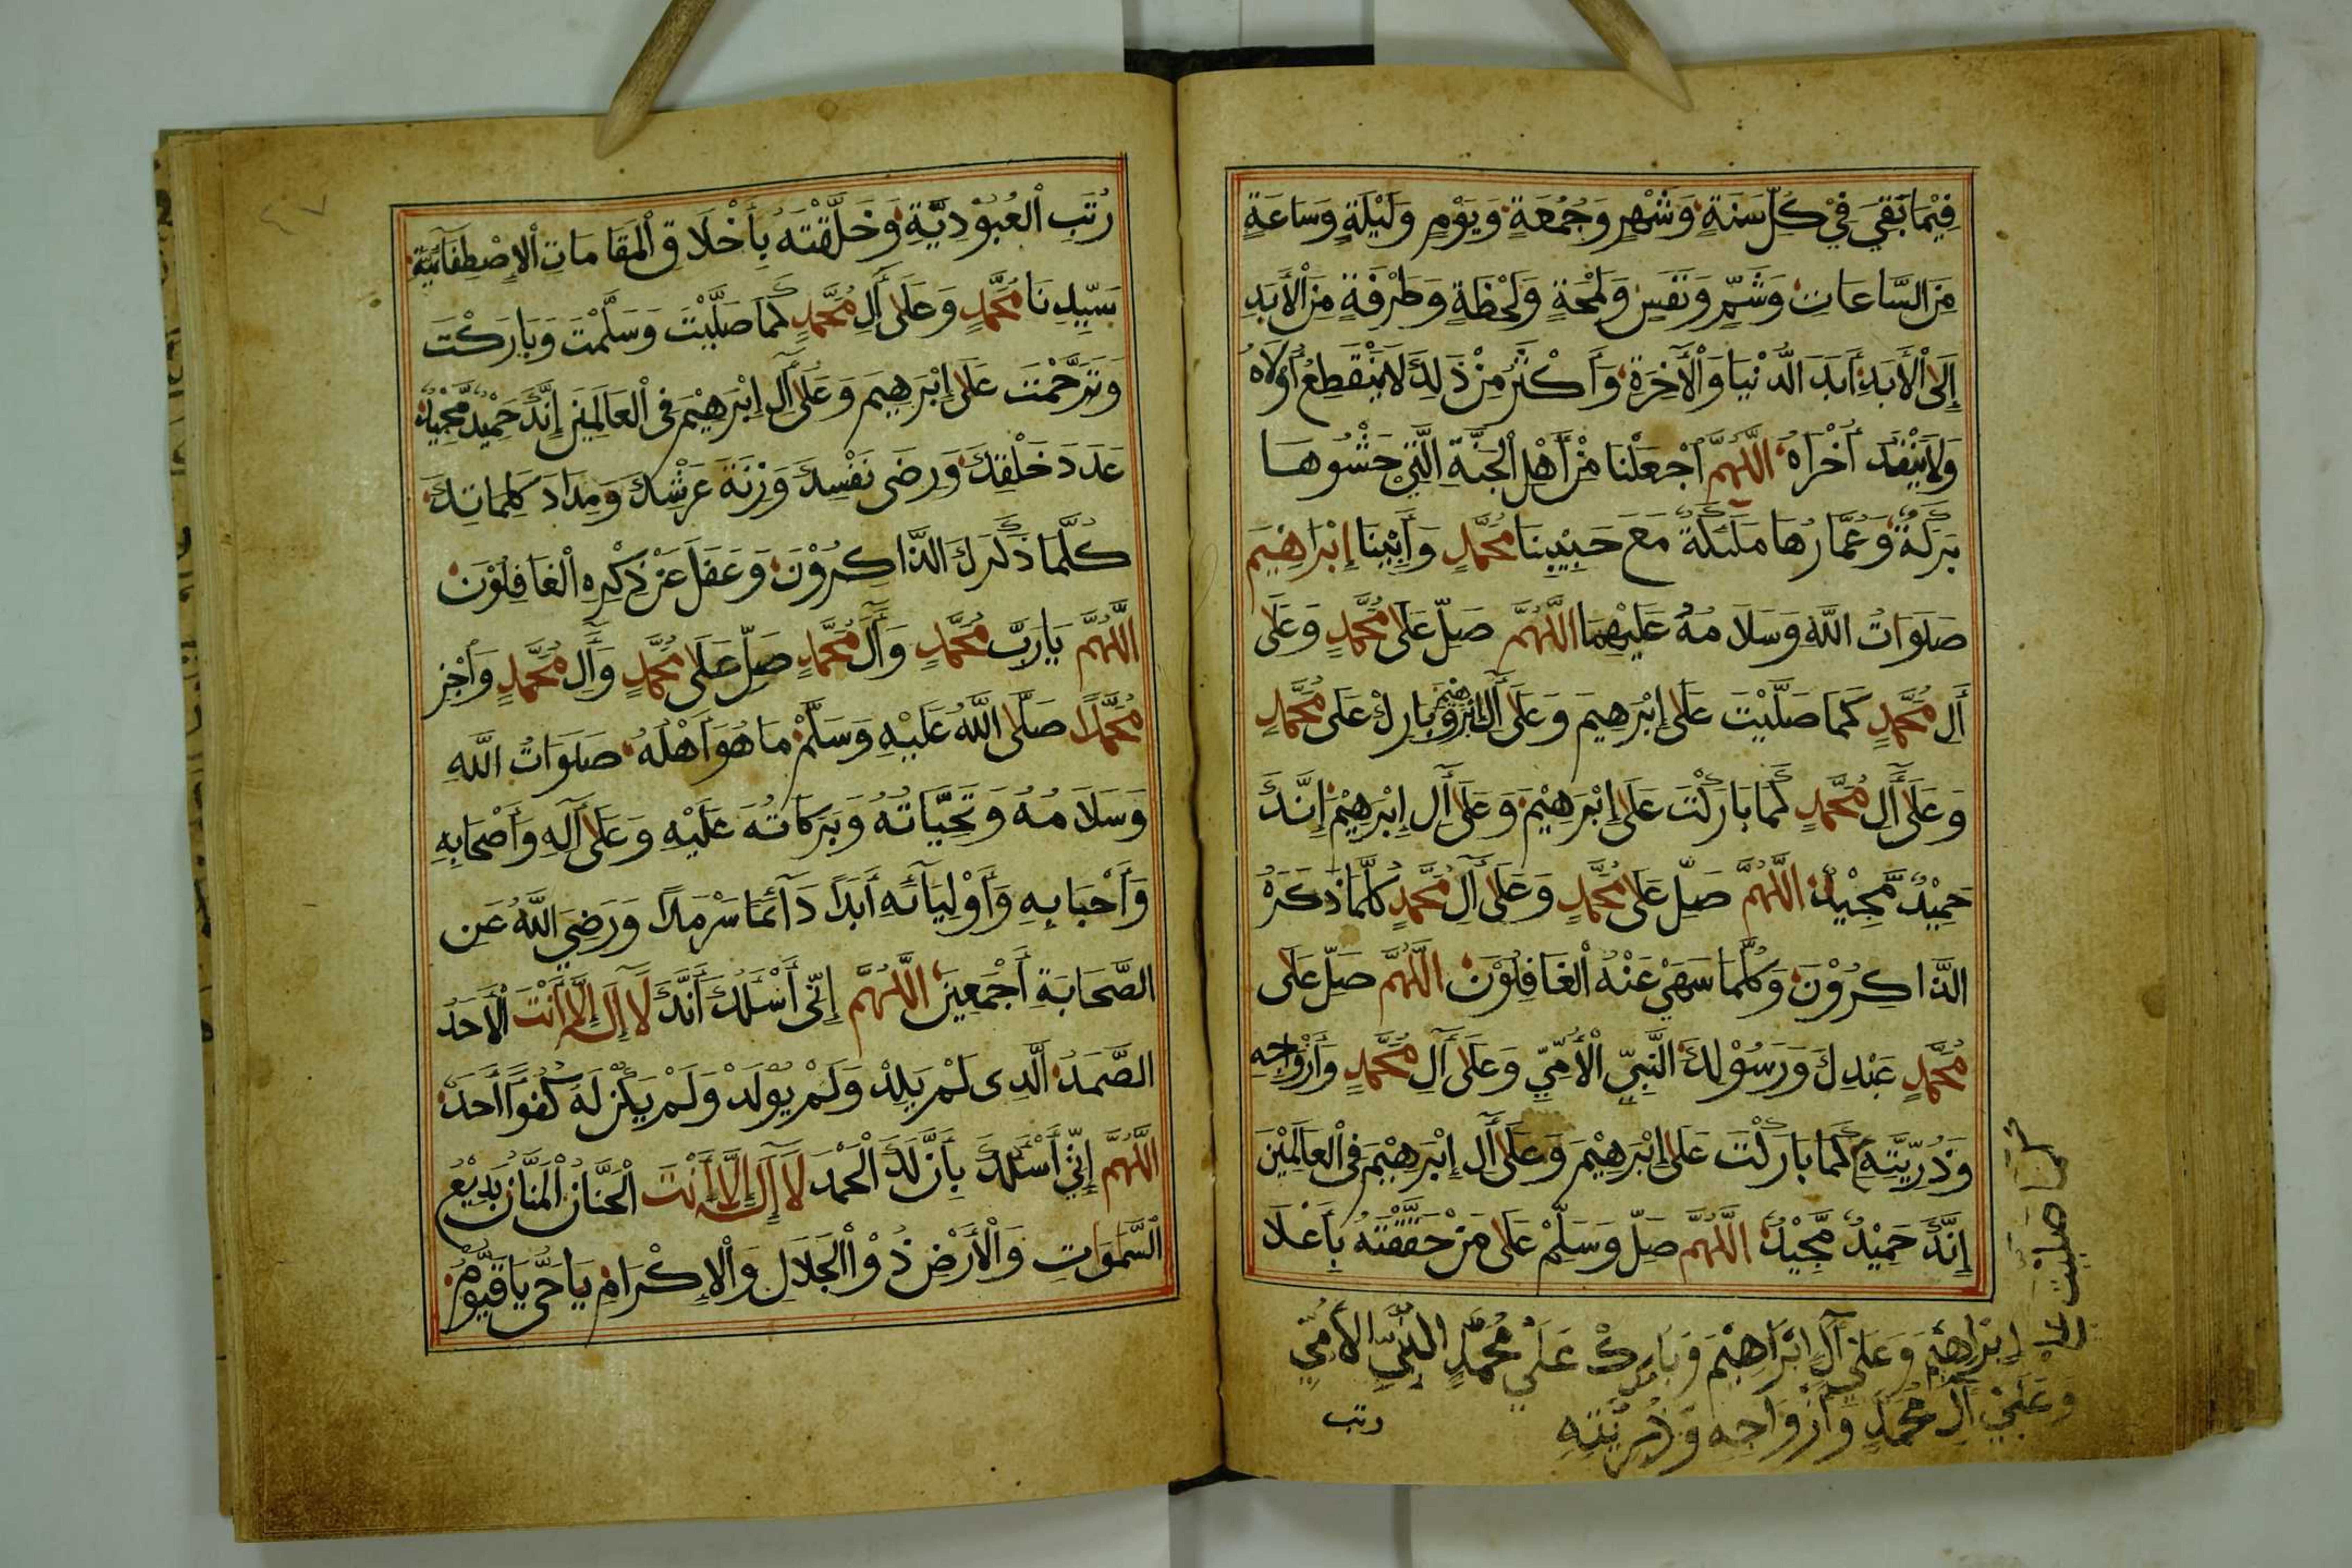 فِيْمَا بَقِيَ فِيْ كُلِّ سَنَةٍ وَشَهْرٍ وَجُمُعَةٍ وَيَوْمٍ وَلَيْلَةٍ وَسَاعَةٍ
مِنَ السَّاعَاتِ وَشَمٍّ وَنَفَسٍ وَلَمْحَةٍ وَلَحْظَةٍ وَطَرْفَةٍ مِنَ الْأَبَدِ
إِلَى الْأَبَدِ أَبَدَ الدُّنْيَا وَالْآخِرَةِ وَأَكْثَرُ مِنْ ذَلِكَ لَا يَنْقَطِعُ أُولَاهُ
وَلَا يَنْفَدُ أُخْرَاهُ اللَّهُمَّ اجْعَلْنَا مِنْ أَهْلِ الْجَنَّةِ الَّتِيْ حَشْوُهَا
بَرَكَةٌ وَعُمَّارُهَا مَلَئِكَةٌ مَعَ حَبِيْبِنَا مُحَمَّدٍ وَأَبِيْنَا إِبْرَاهِيْمَ
صَلَوَاتُ اللَّهِ وَسَلَامُهُ عَلَيْهِمَا اللَّهُمَّ صَلِّ عَلَى مُحَمَّدٍ وَعَلَى
أَلِ مُحَمَّدٍ كَمَا صَلَّيْتَ عَلَى إِبْرَهِيمَ وَعَلَى أَلِ إِبْرَهِيْمَ وَبَارِكْ عَلَى مُحَمَّدٍ
وَعَلَى أَلِ مُحَمَّدٍ كَمَا بَارَكْتَ عَلَى إِبْرَهِيْمَ وَعَلَى أَلِ إِبْرَهِيْمَ إِنَّكَ
حَمِيْدٌ مَّجِيْدٌ اللَّهُمَّ صَلِّ عَلَى مُحَمَّدٍ وَعَلَى أَلِ مُحَمَّدٍ كُلَّمَا ذَكَرَهُ
الذَّاكِرُوْنَ وَكُلَّمَا سَهَيْ عَنْهُ الْغَافِلُوْنَ اللَّهُمَّ صَلِّ عَلَى
مُحَمَّدٍ عَبْدِكَ وَرَسُوْلِكَ النَّبِيِّ الْأُمِّيِّ وَعَلَى أَلِ مُحَمَّدٍ وَأَزْوَاجِهِ
وَذُرِّيَّتِهِ كَمَا بَارَكْتَ عَلَى إِبْرَهِيْمَ وَعَلَى أَلِ إِبْرَهِيْمَ فِى الْعَالَمِيْنَ
إِنَّكَ حَمِيْدٌ مَّجِيْدٌ اللَّهُمَّ صَلِّ وَسَلِّمْ عَلَى مَنْ حَقَّقْتَهُ بِأَعْلَا
كما صليت على
إبْرَاهِيْمَ وَعَلَى آلِ إبْرَاهِيْمَ وَبَارِكْ عَلَى مُحَمَّدٍ النَّبِيِّ الأُمِّيِّ
وَعَلَى آلِ مُحَمَّدٍ وَأَزْوَاجِهِ وَذُرِّيَّتِهِ
رتب
رُتَبِ الْعُبُوْدِيَّةِ وَخَلَّقْتَهُ بِأَخْلَاقِ الْمَقَامَاتِ الْإِصْطِفَآئِيَّةِ
سَيِّدِنَا مُحَمَّدٍ وَعَلَى أَلِ مُحَمَّدٍ كَمَا صَلَّيْتَ وَسَلَّمْتَ وَبَارَكْتَ
وَتَرَحَّمْتَ عَلَى إِبْرَهِيمَ وَعَلَى أَلِ إِبْرَهِيْمَ فِى الْعَالَمِيْنَ إِنَّكَ حَمِيْدٌ مَّجِيْدٌ
عَدَدَ خَلْقِكَ وَرِضَى نَفْسِكَ وَزِنَةَ عَرْشِكَ وَمِدَادَ كَلِمَاتِكَ
كُلَّمَا ذَكَرَكَ الذَّاكِرُوْنَ وَغَفَلَ عَنْ ذِكْرِهِ الْغَافِلُوْنَ
اللَّهُمَّ يَارَبَّ مُحَمَّدٍ وَأَلِ مُحَمَّدٍ صَلِّ عَلَى مُحَمَّدٍ وَأَلِ مُحَمَّدٍ وَاجْزِ
مُحَمَّدًا صَلَّى اللَّهُ عَلَيْهِ وَسَلَّمْ مَا هُوَ أَهْلُهُ صَلَوَاتُ اللَّهِ
وَسَلَامُهُ وَتَحِيَّاتُهُ وَبَرَكَاتُهُ عَلَيْهِ وَعَلَى آلِهِ وَأَصْحَابِهِ
وَأَحْبَابِهِ وَأَوْلِيَآئِهِ أَبَدًا دَآئِمًا سَرْمَدًا وَرَضِيَ اللَّهُ عَنِ
الصَّحَابَةِ أَجْمَعِيْنَ اللَّهُمَّ إِنِّى أَسْئَلُكَ أَنَّكَ لَا إِلَهَ إِلَّا أَنْتَ الْأَحَدُ
الصَّمَدُ الَّذِى لَمْ يَلِدْ وَلَمْ يُوْلَدْ وَلَمْ يَكُنْ لَهُ كُفُوًا أَحَدٌ
اللَّهُمَّ إِنِّيْ أَسْئَلُكَ بِأَنَّ لَكَ الْحَمْدَ لَا إِلَهَ إِلَّا أَنْتَ الْحَنَّانُ الْمَنَّانُ بَدِيْعُ
السَّمَوَاتِ وَالْأَرْضِ ذُوْ الْجَلَالِ وَالْإِكْرَامِ يَا حَيُّ يَا قَيُّوْمُ